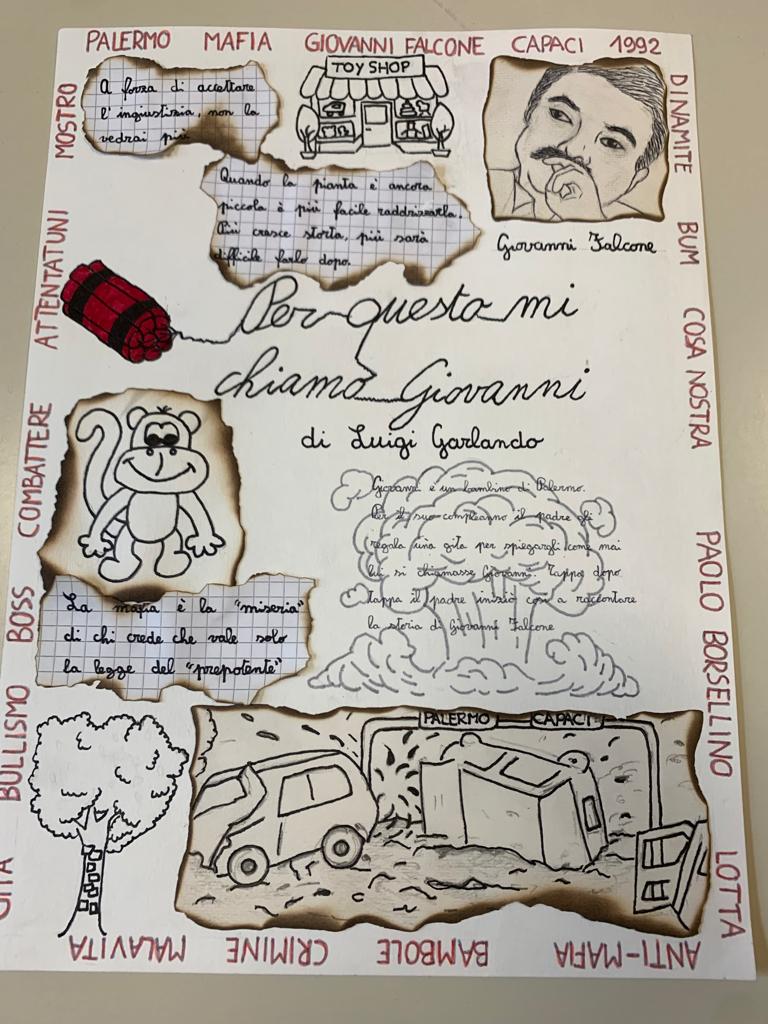 PALERMO MAFIA GIOVANNI FALCONE CAPACI 1992
DINAMITE BUM COSA NOSTRA PAOLO BORSELLINO LOTTA
ANTI-MAFIA BAMBOLE CRIMINE MALAVITA
GITA BULLISMO BOSS COMBATTERE ATTENTATUNI MOSTRO
A forza di accettare
l'ingiustizia, non la
vedrai più
TOY SHOP
Quando la pianta è ancora
piccola è più facile raddrizzarla.
Più cresce storta, più sarà
difficile farlo dopo.
Giovanni Falcone
Per questo mi
chiamo Giovanni
di Luigi Garlando
Giovanni è un bambino di Palermo.
Per il suo compleanno il padre gli
regala una gita per spiegargli come mai
lui si chiamasse Giovanni. Tappa dopo
tappa il padre iniziò così a raccontare
la storia di Giovanni Falcone
La mafia è la "miseria"
di chi crede che vale solo
la legge del "prepotente"
PALERMO CAPACI